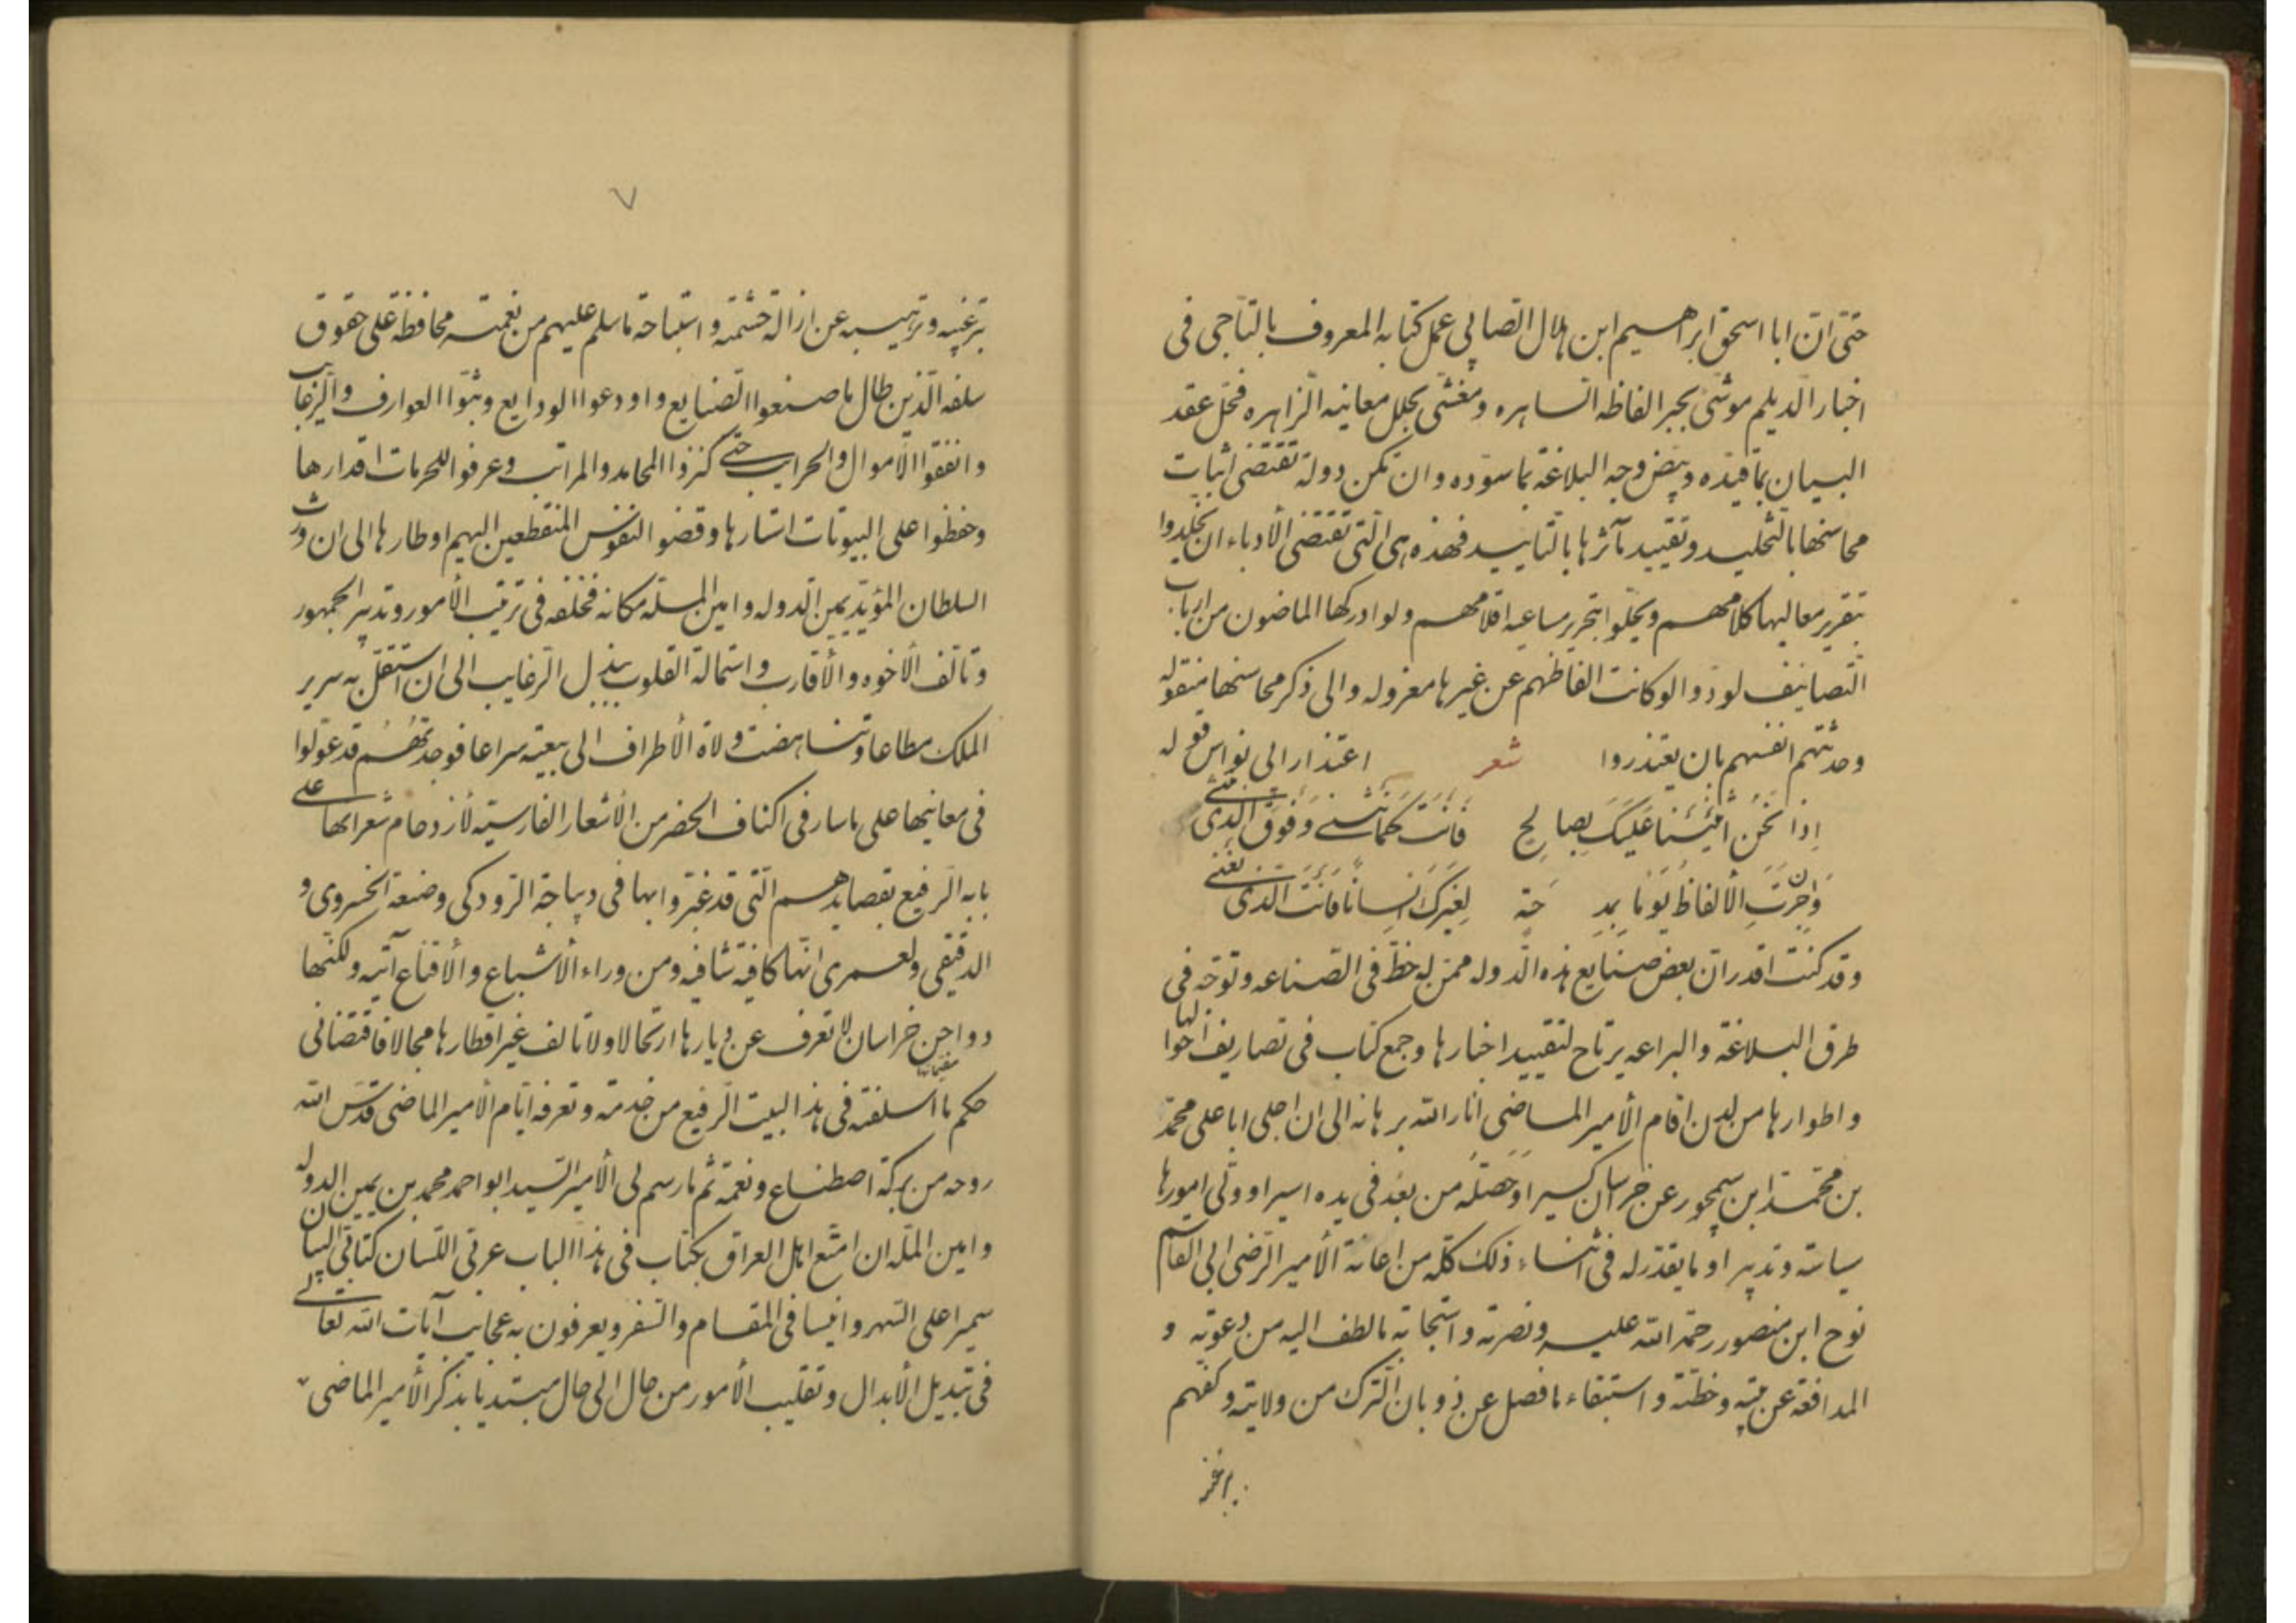 حتی ان ابا اسحق ابراهیم ابن هلال الصابی عمل کتابه المعروف بالتاجی فی
اخبار الدیلم موشی بحبر الفاظه الساهره و مغشی بحلل معانیه الزاهره فحل عقد
البیان بما قیده و بیض وجه البلاغة بما سوده و ان تکن دولة تقتضی اثبات
محاسنها بالتخلید و تقیید مآثرها بالتابید فهذه هی التی تقتضی الأدباء ان یخلدوا
بتقریر معالیها کلامهم و یحلوا بتحریر مساعیه اقلامهم ولو ادرکها الماضون من ارباب
التصانیف لودوا لو کانت الفاظهم عن غیرها معزوله و الی ذکر محاسنها منقوله
و حدثتهم انفسهم بان یعتذروا شعر اعتذار ابی نواس قوله
اِذا نَحْنُ اثنینا عَلَیکَ بِصالِحٍ فانت کَما نثنی وَفَوقَ الَّذی نثنی
وَان جَرَتِ الألفاظُ یَوْمًا بِمِدحَة لِغیرِکَ انسانًا فَانتَ الذی نعنی
و قد کنت اقدر ان بعض صنایع هذه الدوله ممن له حظ فی الصناعه و توجه فی
طرق البلاغة و البراعه یرتاح لتقیید اخبارها و جمع کتاب فی تصاریف احوالها
و اطوارها من لدن اقام الأمیر الماضی انار الله برهانه الی ان اجلی ابا علی محمد
بن محمد ابن سیمجور عن خراسان کسیرا و حَصَّلَه من بعد فی یده اسیرا و ولی امورها
سیاسة و تدبیرا و ما یقدر له فی اثناء ذلک کله من اعانة الأمیر الرضی ابی القاسم
نوح ابن منصور رحمة الله علیه و نصرته و استجابة ما لطف الیه من دعوته و
المدافعة عن بیته و خطته و استبقاء ما فصل عن ذوبان الترک من ولایته و کفهم
بترغیبه
٧
بترغیبه و ترهیبه عن ازالة حشمته و استباحة ما سلم علیهم من نعمته محافظة علی حقوق
سلفه الذین طال ما صنعوا الصنایع و اودعوا الودایع و بثوا العوارف و الرغایب
و انفقوا الأموال و الحرایب حتی کنزوا المحامد و المراتب و عرفوا للحرمات اقدارها
و حفظوا علی البیوتات استارها و قضوا النفوس المنقطعین الیهم اوطارها الی ان ورث
السلطان المؤید یمین الدوله و امین المله مکانه فخلفه فی ترتیب الأمور و تدبیر الجمهور
و تألف الأخوه و الأقارب و استمالة القلوب ببذل الرغایب الی ان استقل به سریر
الملک مطاعا و تناهضت ولاة الأطراف الی بیعته سراعا فوجدتهُم قد عولوا
فی معانیها علی ما سار فی اکناف الحضر من الأشعار الفارسیة لازدحام شعرائها علی
بابه الرفیع بقصایدهم التی قد غبروا بها فی دیباجة الرودکی و صنعة الخسروی و
الدقیقی و لعمری انها کافیة شافیه و من وراء الأشباع و الأقناع آتیه و لکنها
دواجن خراسان لا تعرف عن دیارها ارتحالا و لا تألف غیر اقطارها مجالا فاقتضانی
حکم ما اسلفته فی هذا البیت الرفیع من خدمة و تعرفه ایام الأمیر الماضی قدس الله
روحه من برکة اصطناع و نعمة ثم ما رسم لی الأمیر السید ابو احمد محمد بن یمین الدوله
و امین المله ان امتع اهل العراق بکتاب فی هذا الباب عربی اللسان کتابی البیان
سمیرا علی السهر و انیسا فی المقام و السفر و یعرفون به عجایب آیات الله تعالی
فی تبدیل الأبدال و تقلیب الأمور من حال الی حال مبتدیا بذکر الأمیر الماضی